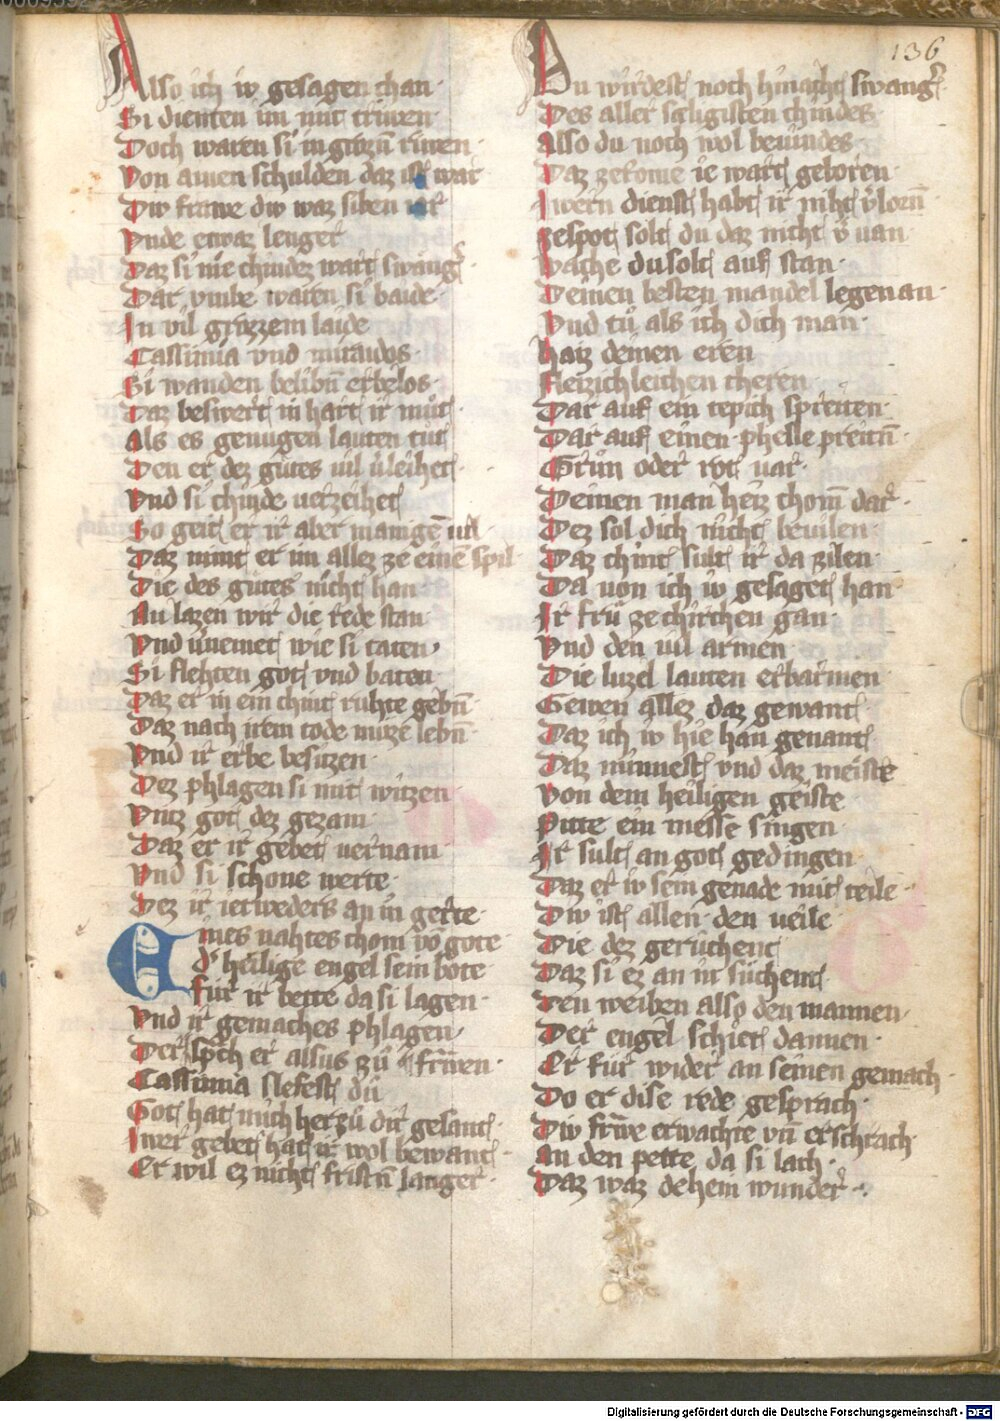 136
Also ich iv gesagen chan·
Si dienten im mit triwen·
Doch waren si in grozn̄ riwen·
Von ainen schulden daz ist war
Div frawe div waz siben iar
Vnde etwaz lenger
Daz si nie chindez wart swang͛
Dar vmbe waren si baide·
In vil grozzem laide
Cassinia vnd mirawds·
Si wanden belibn̄ erbelos·
Daz beswert in hart ir můt·
Als es genugen lauten tůt
Den er dez gůtes vil v͛leihet·
Vnd si chinde verzeihet
So geit er ir aber manigē vil
Daz nimt er im allez ze einē spil·
Die des gůtes nicht han·
Nu lazen wir die rede stan·
Vnd v͛nemet wie si taten·
Si flehten got vnd baten·
Daz er in ein chint ruhte gebn̄
Daz nach irem tode mize lebn̄·
Vnd ir erbe besizen·
Dez phlagen si mit witzen
Vntz got dez gezam·
Daz er ir gebet vernam
Vnd si schone werte·
Dez ir ietweders an in gerte·
Eines nahtes chom vō gote·
d͛ heilige engel sein bote
fur ir bette da si lagen·
Vnd ir gemaches phlagen·
Der sp̄ch er alsus zů d͛ frawen·
Cassinia slefest du
Got hat mich her zů dir gesant·
Iwer gebet hat ir wol bewant·
Er wil ez nicht fristn̄ langer·
Du wirdest noch hinaht swang͛
Des aller sæligisten chindes·
Also du noch wol bevindes·
Daz ze rome ie wart geboren·
Iwern dienst habt ir niht v͛lorn̄
ze spot solt du daz nicht v͛van·
Wache du solt auf stan·
Deinen besten mandel legen an·
Vnd tů als ich dich man·
Haiz deinen eren
fleizichleichen cheren
Dar auf ein tepich spreiten·
Dar auf einen phelle preitn̄·
Grůn oder rot var·
Deinen man heiz chom̄ dar·
Dez sol dich nicht bevilen·
Daz chint sult ir da zilen·
Da von ich iv gesaget han·
Ir frů ze chirchen gan·
Vnd den vil armen
Die luzel lauten erbarmen
Geben allez daz gewant
Daz ich iv hie han genant
Daz minnest vnd daz meiste
Von dem heiligen geiste
Pitte ein messe singen·
Ir sult an got gedingen·
Daz er iv sein genade mit teile·
Div ist allen den veile
Die dez gerůchent
Daz si ez an in sůchent·
Den weiben also den mannen·
Der engel schiet dannen·
Er fůr wider an seinen gemach·
Do er dise rede gesprach·
Div frawe erwachte vn̄ erschrach·
An den pette da si lach·
Daz waz dehein wunder·
Digitalisierung gefördert durch die Deutsche Forschungsgemeinschaft - DFG